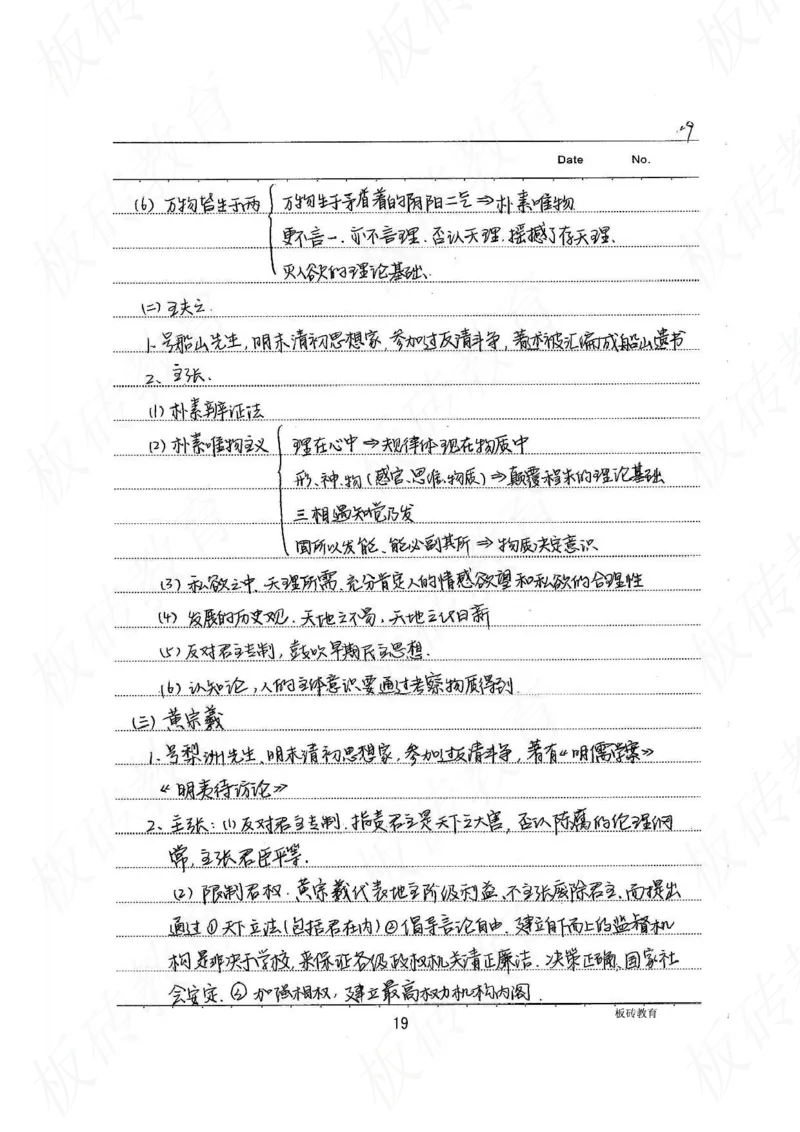 19
Date No.
(6) 万物皆生于两 万物生于矛盾着的阴阳二气⇒朴素唯物
更不言一、亦不言理、否认天理、摇撼了存天理、
灭人欲的理论基础、
(二) 王夫之.
1、号船山先生，明末清初思想家，参加过反清斗争，著术被汇编成船山遗书
2、主张、
(1) 朴素辨证法
(2) 朴素唯物主义 理在心中⇒规律体现在物质中
形、神、物(感官、思维、物质)⇒颠覆程朱的理论基础
三相遇知觉乃发
因所以发能、能必副其所⇒物质决定意识
(3) 私欲之中、天理所需、充分肯定人的情感欲望和私欲的合理性
(4) 发展的历史观、天地之不易，天地之化日新
(5) 反对君主专制，鼓吹早期民主思想.
(6) 认知论，人的主体意识要通过考察物质得到
(三) 黄宗羲
1、号梨洲先生、明末清初思想家，参加过反清斗争，著有《明儒学案》
《明夷待访论》
2、主张：(1) 反对君主专制、指责君主是天下之大害，否认陈腐的伦理纲
常，主张君臣平等.
(2) 限制君权、黄宗羲代表地主阶级利益、不主张废除君主、而提出
通过①天下立法(包括君在内)②倡导言论自由、建立自下而上的监督机
构是非决于学校、来保证各级政权机关清正廉洁、决策正确、国家社
会安定、③加强相权，建立最高权力机构内阁.
19
板砖教育